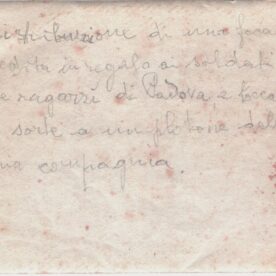 distribuzione di una foca
edita in regalo ai soldati
e ragazzi di Padova, e tocca
sorte a un plotone del
ma compagnia.